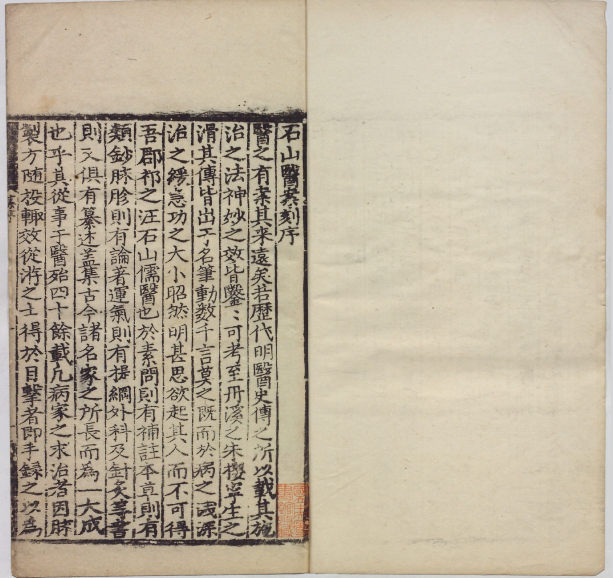 石山醫案刻序
醫之有案其來遠矣若歷代明醫史傳之所以載其施
治之法神妙之效皆鑿〻可考至丹溪之朱攖寧生之
滑其傳皆出于名筆動數千言莫之既而於病之淺深
治之緩急功之大小昭然明甚思欲起其人而不可得
吾郡祁之汪石山儒醫也於素問則有補註本草則有
類鈔脉胗則有論著運氣則有提綱外科及針灸等書
則又俱有纂述盖集古今諸名家之所長而為一大成
也乎其從事于醫殆四十餘載凡病家之求治者因脉
製方隨投輒效從游之士得於目擊者即手錄之以為